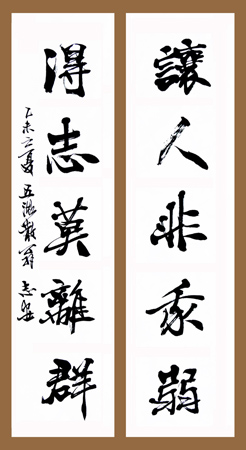 讓人非我弱
得志莫離群
乙未之夏 五湖散翁